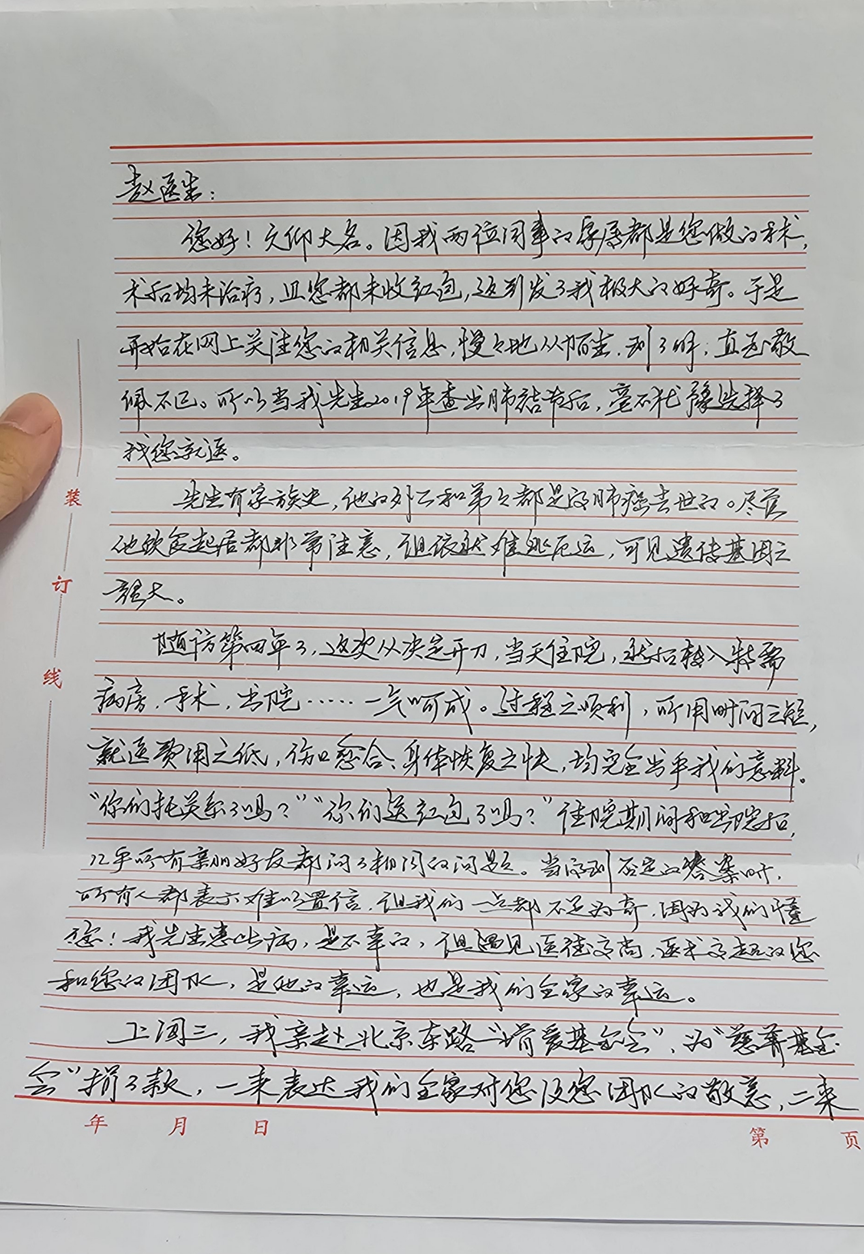 赵医生：
您好！久仰大名。因我两位同事的母亲都是您做的手术，
术后均未治疗，且您都未收红包，这引发了我极大的好奇。于是
开始在网上关注您的相关信息，慢々地从陌生，到了解，直至敬
佩不已。所以当我先生2019年查出肺结节后，毫不犹豫选择了
找您就医。
先生有家族史，他的外公和弟々都是因肺癌去世的。尽管
他饮食起居都非常注意，但依然难逃厄运，可见遗传基因之
强大。
随访第四年了，这次从决定开刀，当天住院，然后转入特需
病房，手术，出院……一气呵成。过程之顺利，所用时间之短，
就医费用之低，伤口愈合、身体恢复之快，均完全出乎我们意料。
“你们托关系了吗？”“你们送红包了吗？”住院期间和出院后，
几乎所有亲朋好友都问了相同的问题。当得到否定的答案时，
所有人都表示难以置信，但我们一点都不足为奇，因为我们懂
您！我先生患此病，是不幸的，但遇见医德高尚、医术高超的您
和您的团队，是他的幸运，也是我们全家的幸运。
上周三，我亲赴北京东路“肖爱基金会”，为“慈善基金
会”捐了款，一来表达我们全家对您及您团队的敬意，二来
装
订
线
年 月 日
第 页